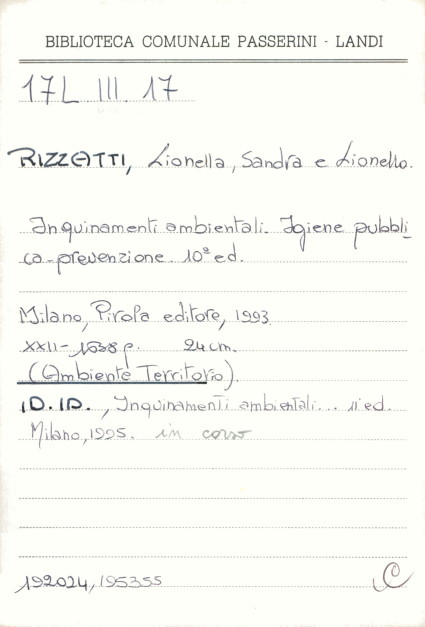 BIBLIOTECA COMUNALE PASSERINI - LANDI
17L III. 17
RIZZATTI, Lionella, Sandra e Lionello.
Inquinamenti ambientali. Igiene pubbli
ca-prevenzione. 10ª ed.
Milano, Pirola editore, 1993
XXII- 1638 p. 24 cm.
(Ambiente Territorio).
ID. ID., Inquinamenti ambientali... 11 ed.
Milano, 1995. in corso
192024, 195355
C